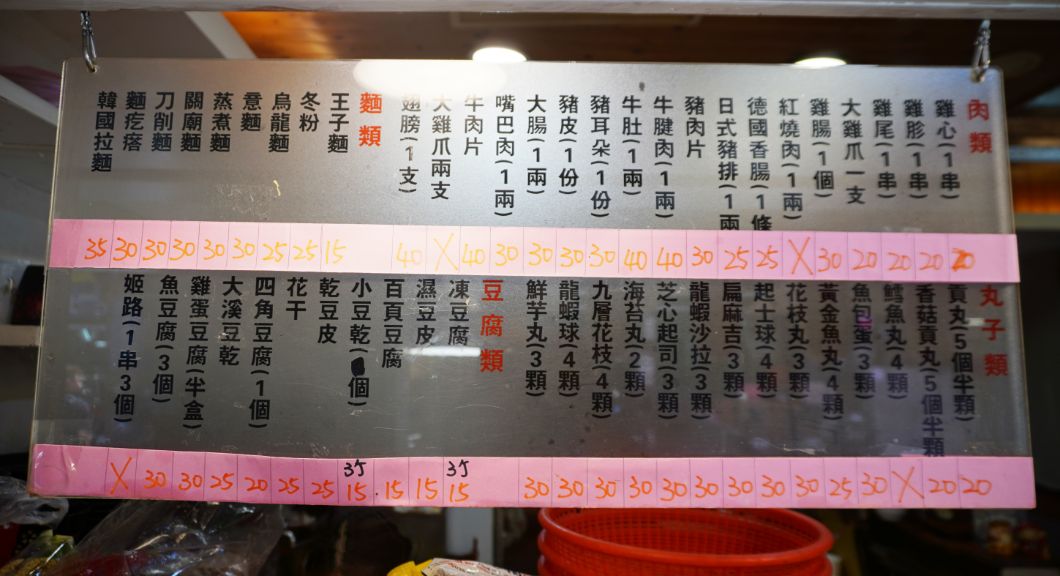 肉類
雞心(1串)
雞胗(1串)
雞尾(1串)
大雞爪一支
雞腸(1個)
紅燒肉(1兩)
德國香腸(1條
日式豬排(1兩
豬肉片
牛腱肉(1兩)
牛肚(1兩)
豬耳朵(1份)
豬皮(1份)
大腸(1兩)
嘴巴肉(1兩)
牛肉片
大雞爪兩支
翅膀(1支)
麵類
王子麵
冬粉
烏龍麵
意麵
蒸煮麵
關廟麵
刀削麵
麵疙瘩
韓國拉麵
35 30 30 30 30 30 25 25 15 40 X 40 30 30 30 30 40 40 30 25 25 X 30 20 20 20 20
丸子類
貢丸(5個半顆)
香菇貢丸(5個半顆
鱈魚丸(4顆)
魚包蛋(3顆)
黃金魚丸(4顆)
花枝丸(3顆)
起士球(4顆)
扁麻吉(3顆)
龍蝦沙拉(3顆)
芝心起司(3顆)
海苔丸(2顆)
九層花枝(4顆)
龍蝦球(4顆)
鮮芋丸(3顆)
豆腐類
凍豆腐
濕豆皮
百頁豆腐
小豆乾(個)
乾豆皮
花干
四角豆腐(1個)
大溪豆乾
雞蛋豆腐(半盒)
魚豆腐(3個)
姬路(1串3個)
35 35
X 30 30 25 20 25 25 15 15 15 15 30 30 30 30 30 30 30 30 30 25 30 X 20 20